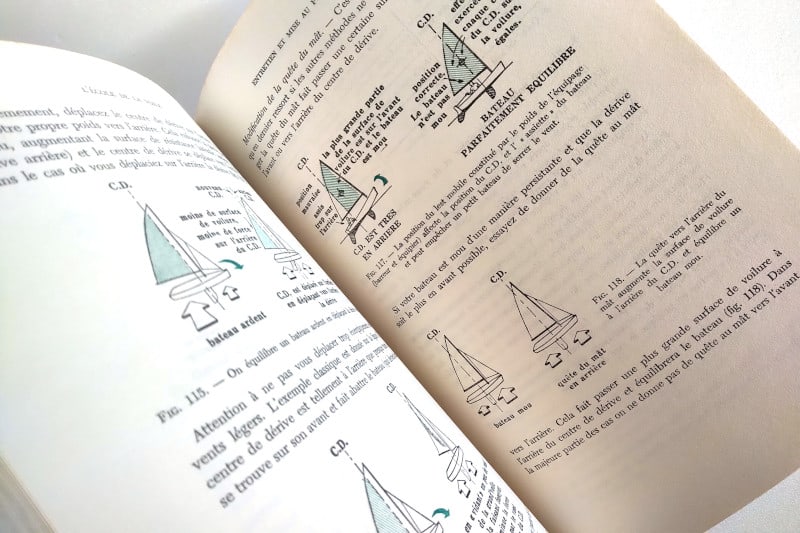 L'ÉCOLE DE LA
déplacez le centre de
propre poids vers l'arrière. Cela
augmentant la surface de
arrière) et le centre de dérive se déplace
le cas où vous déplaciez sur l'arrière
C.D.
moins de surface
de voilure,
moins de force
sur l'arrière
du C.D.
C.D.
C.D. est déplacé en
en déplaçant vers
la dérive
bateau ardent
FIG. 115. — On équilibre un bateau ardent en
Attention à ne pas vous déplacer trop
vents légers. L'exemple classique est donné
centre de dérive est tellement à l'arrière que
se trouve sur son avant et fait abattre le bateau
C.D.
C.D.
en « ridant »
ENTRETIEN ET MISE AU
Modification de la quête du mât. — C'est
qu'en dernier ressort si les autres méthodes ne
la quête du mât fait passer une certaine
l'avant ou vers l'arrière du centre de dérive.
C.D.
exercée
chaque
du C.D. sur
la voilure,
égales.
position
correcte.
Le bateau
n'est pas
mou
BATEAU
PARFAITEMENT EQUILIBRE
la plus grande partie
de la surface de
voilure est sur l'avant
du C.D. et le bateau
est mou
C.D.
position
mauvaise
assis
trop sur
l'arrière
C.D. EST TRES
EN ARRIERE
FIG. 117. — La position du lest mobile constitué par le poids de l'équipage
(barreur et équipier) affecte la position du C.D. et l' « assiette » du bateau
et peut empêcher un petit bateau de serrer le vent.
Si votre bateau est mou d'une manière persistante et que la dérive
soit le plus en avant possible, essayez de donner de la quête au mât
C.D.
C.D.
bateau mou
quête du mât
en arrière
FIG. 118. — La quête vers l'arrière du
mât augmente la surface de voilure
à l'arrière du C.D. et équilibre un
bateau mou.
vers l'arrière. Cela fait passer une plus grande surface de voilure à
l'arrière du centre de dérive et équilibrera le bateau (fig. 118). Dans
la majeure partie des cas on ne donne pas de quête au mât vers l'avant